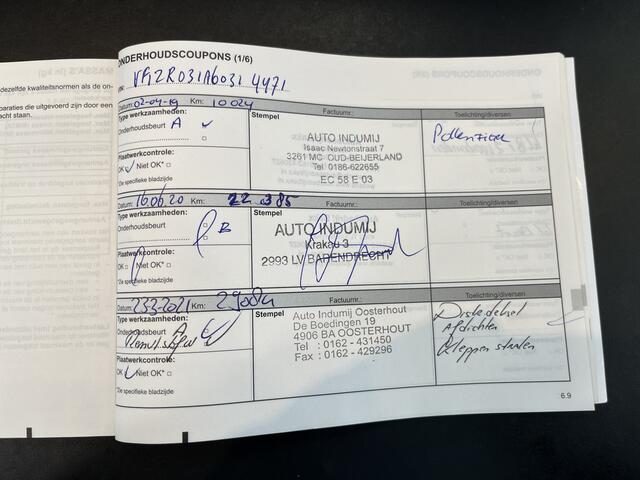 dezelfde kwaliteitsnormen als de on-
paraties die uitgevoerd zijn door een
acht staan.
MASSA'S (in kg)
ONDERHOUDSCOUPONS (1/6)
Datum: 02-04-19 Km: 10024 Factuurnr.: Toelichting/diversen
Type werkzaamheden:
Onderhoudsbeurt A
Stempel
AUTO INDUMIJ
Isaac Newtonstraat 7
3261 MC OUD-BEIJERLAND
Tel 0186-622655
EC 58 E 03
Pollenfilter
Plaatwerkcontrole:
OK Niet OK*
*Zie specifieke bladzijde
Datum: 16 06 20 Km: 22 385 Factuurnr.: Toelichting/diversen
Type werkzaamheden:
Onderhoudsbeurt B
Stempel
AUTO INDUMIJ
Krakau 3
2993 LV BARENDRECHT
Plaatwerkcontrole:
OK Niet OK*
*Zie specifieke bladzijde
Datum: 23-3-2021 Km: 29084 Factuurnr.: Toelichting/diversen
Type werkzaamheden:
Onderhoudsbeurt A
Stempel
Auto Indumij Oosterhout
De Boedingen 19
4906 BA OOSTERHOUT
Tel : 0162 - 431450
Fax : 0162 - 429296
Afdichten
Kleppen stellen
Plaatwerkcontrole:
OK Niet OK*
*Zie specifieke bladzijde
6.9